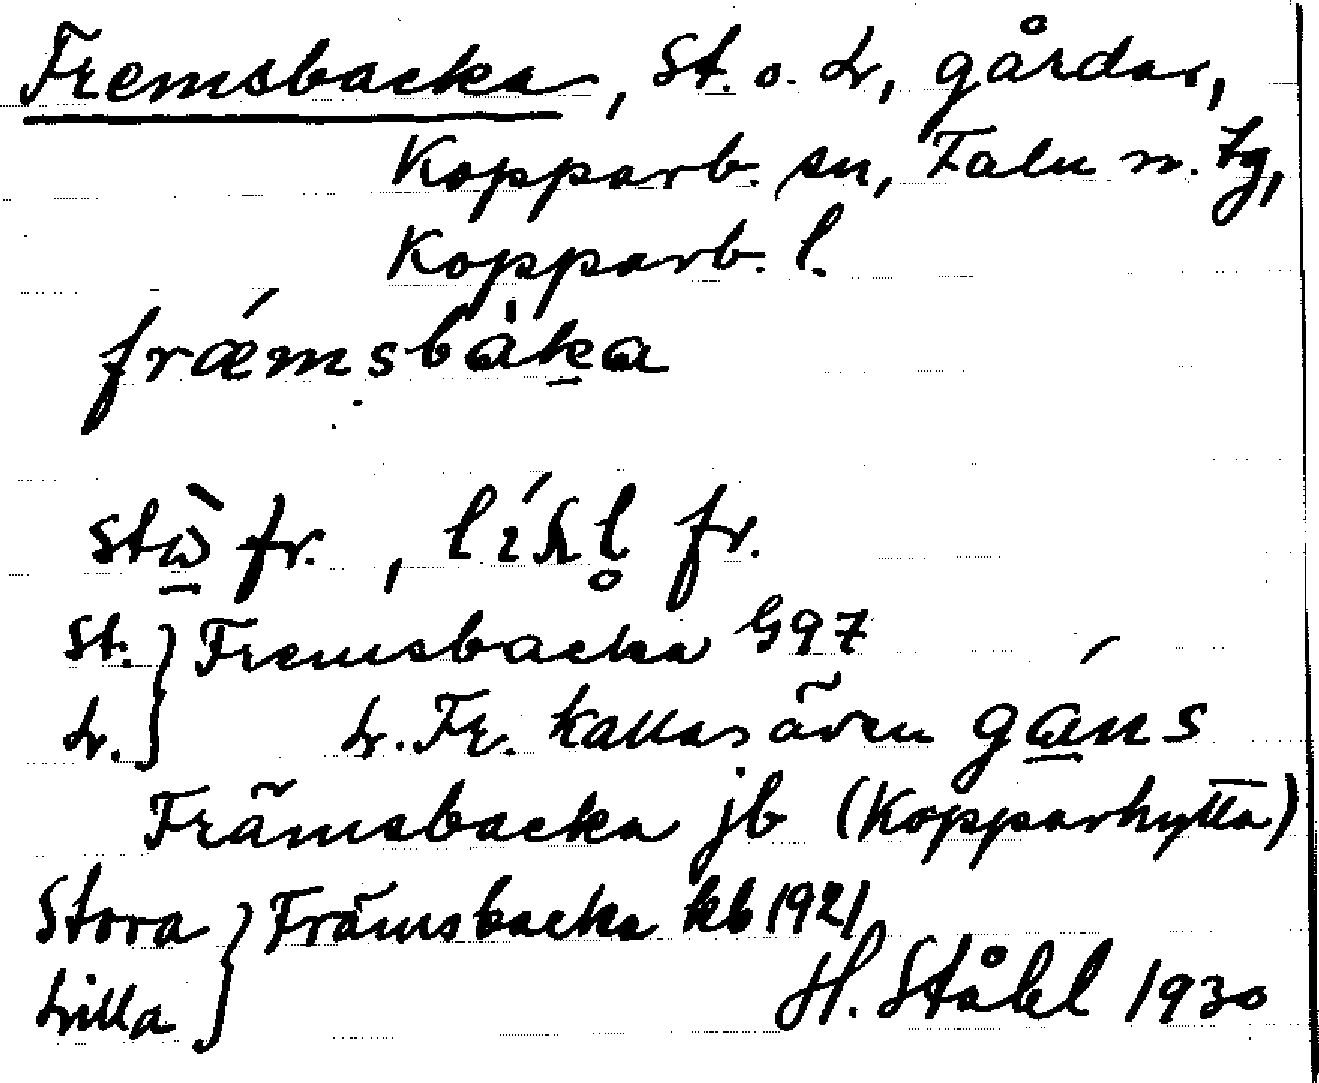 Fremsbacka, St. o. L., gårdar,
Kopparb. sn, Falu n. tg,
Kopparb. l.
frǽmsbàka
stò̱ fr., líhl̥ fr.
St. } Fremsbacka G97
L. } L. Fr. kallas även gá̱ns
Främsbacka jb (Kopparhytta)
Stora } Främsbacka kb 1921
Lilla }
H. Ståhl 1930